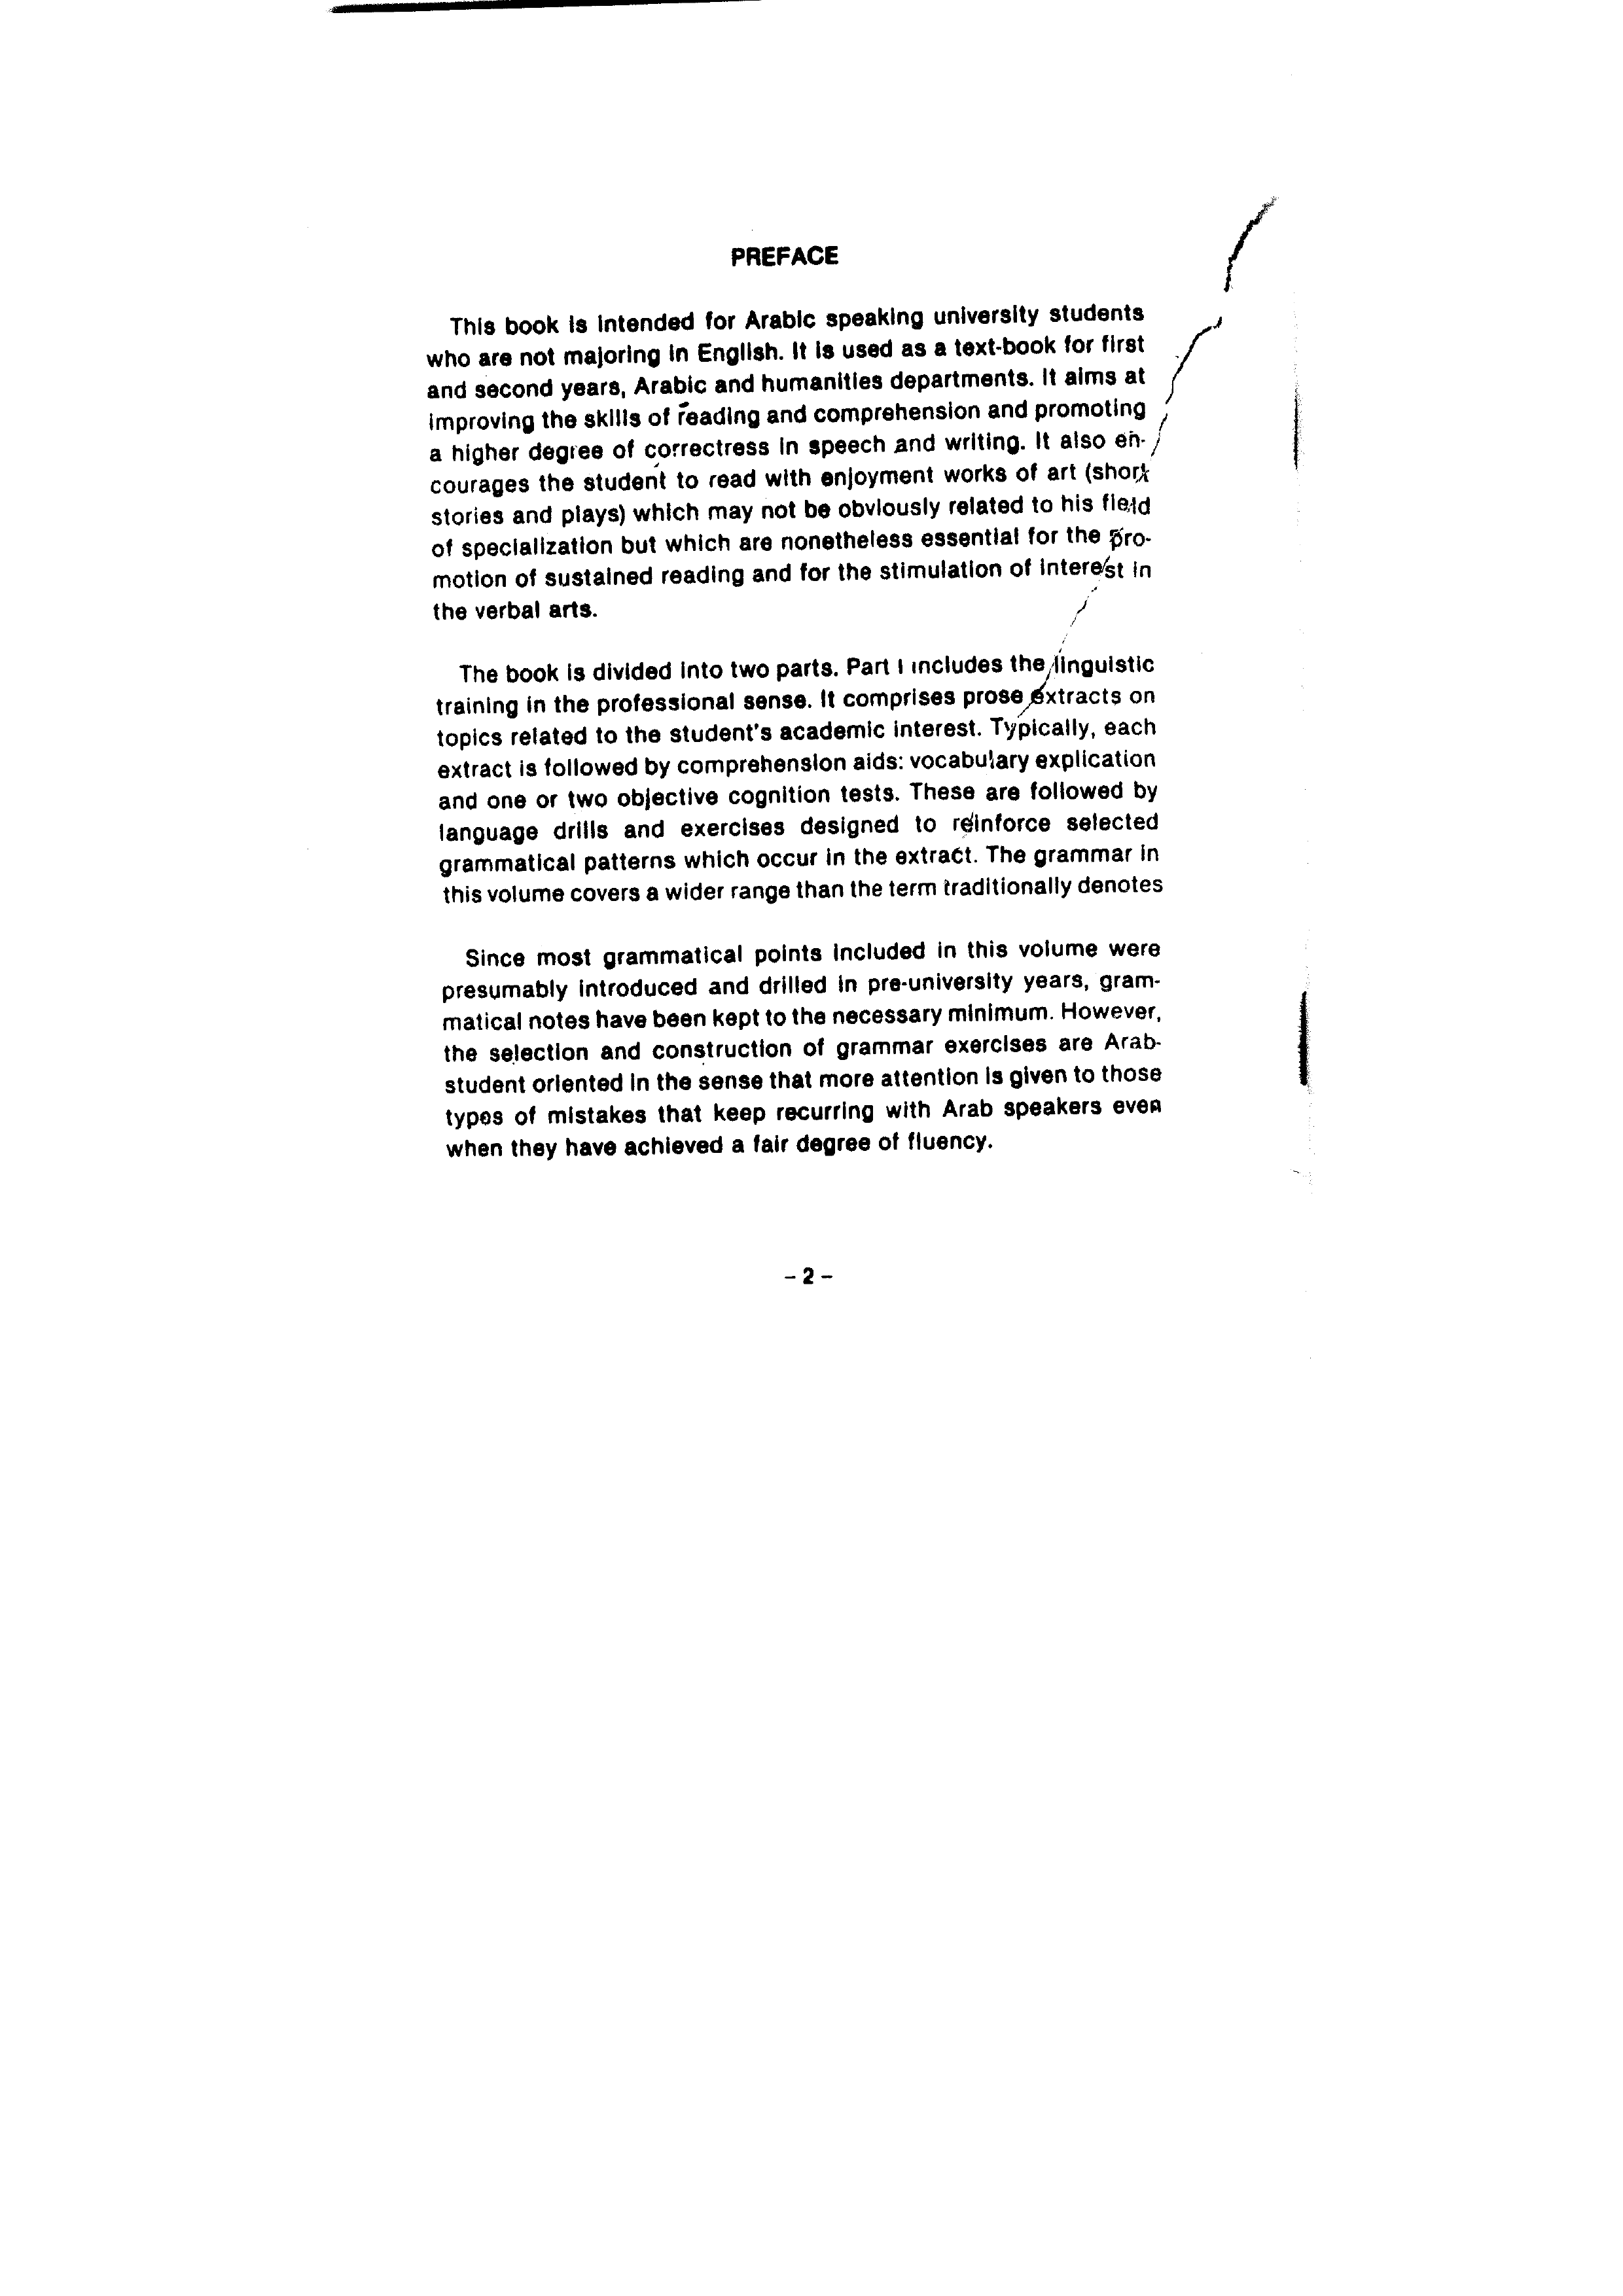 PREFACE
This book is intended for Arabic speaking university students
who are not majoring in English. It is used as a text-book for first
and second years, Arabic and humanities departments. It aims at
improving the skills of reading and comprehension and promoting
a higher degree of correctress in speech and writing. It also en-
courages the student to read with enjoyment works of art (short
stories and plays) which may not be obviously related to his field
of specialization but which are nonetheless essential for the pro-
motion of sustained reading and for the stimulation of interest in
the verbal arts.
The book is divided into two parts. Part I includes the linguistic
training in the professional sense. It comprises prose extracts on
topics related to the student's academic interest. Typically, each
extract is followed by comprehension aids: vocabulary explication
and one or two objective cognition tests. These are followed by
language drills and exercises designed to reinforce selected
grammatical patterns which occur in the extract. The grammar in
this volume covers a wider range than the term traditionally denotes
Since most grammatical points included in this volume were
presumably introduced and drilled in pre-university years, gram-
matical notes have been kept to the necessary minimum. However,
the selection and construction of grammar exercises are Arab-
student oriented in the sense that more attention is given to those
types of mistakes that keep recurring with Arab speakers even
when they have achieved a fair degree of fluency.
- 2 -